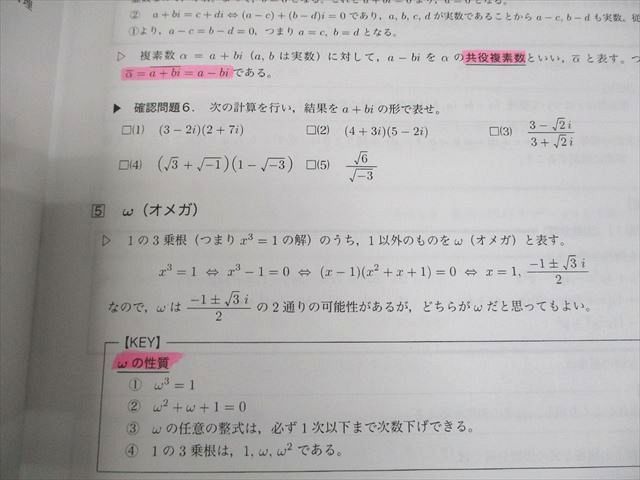 ② a + bi = c + di ⇔ (a − c) + (b − d)i = 0 であり，a, b, c, d が実数であることから a − c, b − d も実数．従
①より，a − c = b − d = 0，つまり a = c, b = d となる．
▷ 複素数 α = a + bi（a, b は実数）に対して，a − bi を α の共役複素数といい，α̅ と表す．つ
α̅ = \overline{a + bi} = a − bi である．
▶ 確認問題 6． 次の計算を行い，結果を a + bi の形で表せ．
□(1) (3 − 2i)(2 + 7i) □(2) (4 + 3i)(5 − 2i) □(3) \frac{3 − √2 i}{3 + √2 i}
□(4) (√3 + √−1)(1 − √−3) □(5) \frac{√6}{√−3}
5 ω（オメガ）
▷ 1 の 3 乗根（つまり x³ = 1 の解）のうち，1 以外のものを ω（オメガ）と表す．
x³ = 1 ⇔ x³ − 1 = 0 ⇔ (x − 1)(x² + x + 1) = 0 ⇔ x = 1, \frac{−1 ± √3 i}{2}
なので，ω は \frac{−1 ± √3 i}{2} の 2 通りの可能性があるが，どちらが ω だと思ってもよい．
【KEY】
ω の性質
① ω³ = 1
② ω² + ω + 1 = 0
③ ω の任意の整式は，必ず 1 次以下まで次数下げできる．
④ 1 の 3 乗根は，1, ω, ω² である．